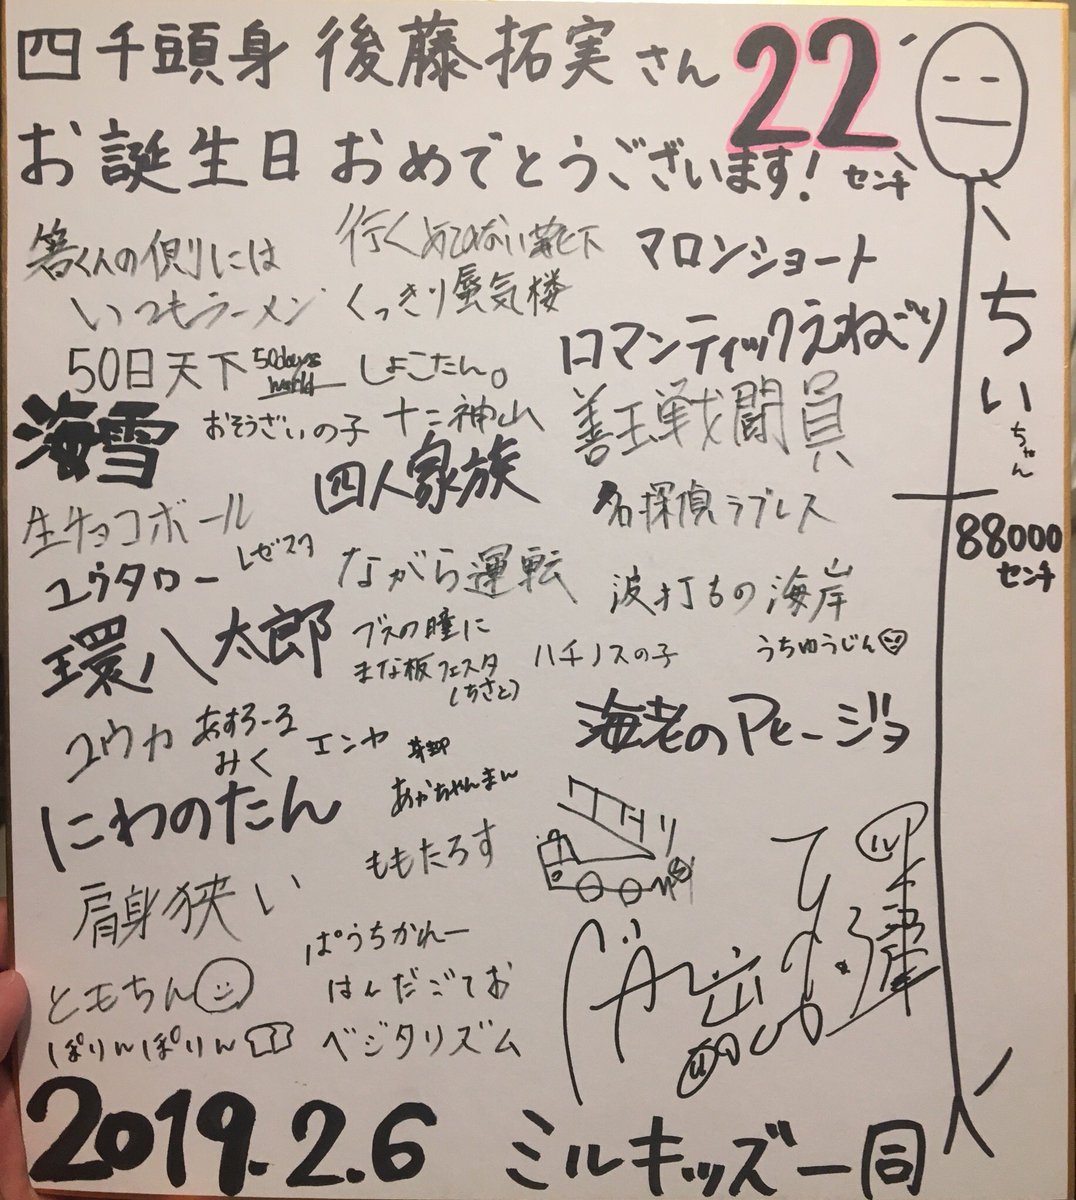 四千頭身 後藤拓実さん 22
お誕生日おめでとうございます!
センチ
箸くんの側には
いつもラーメン
行くあてのない靴下
くっきり蜃気楼
マロンショート
ロマンティックえねごり
ちぃちゃん
50日天下 50days world
しょこたん。
海雪
おそうざいの子
十二神山
善玉戦闘員
四人家族
生チョコボール
名探偵ラブレス
88000
センチ
ユウタロー
レゼスタ
ながら運転
波打もの海岸
環八太郎
ブスの瞳に
まな板フェスタ
(ちさと)
ハチノスの子
うちゅうじん
ユウカ
あすろーる
みく
エンヤ
あかちゃんまん
海老のアヒージョ
にわのたん
ももたろす
肩身狭い
ぱうちかれー
ともちん
はんだごてお
ぽりんぽりん
ベジタリズム
2019.2.6 ミルキッズ一同